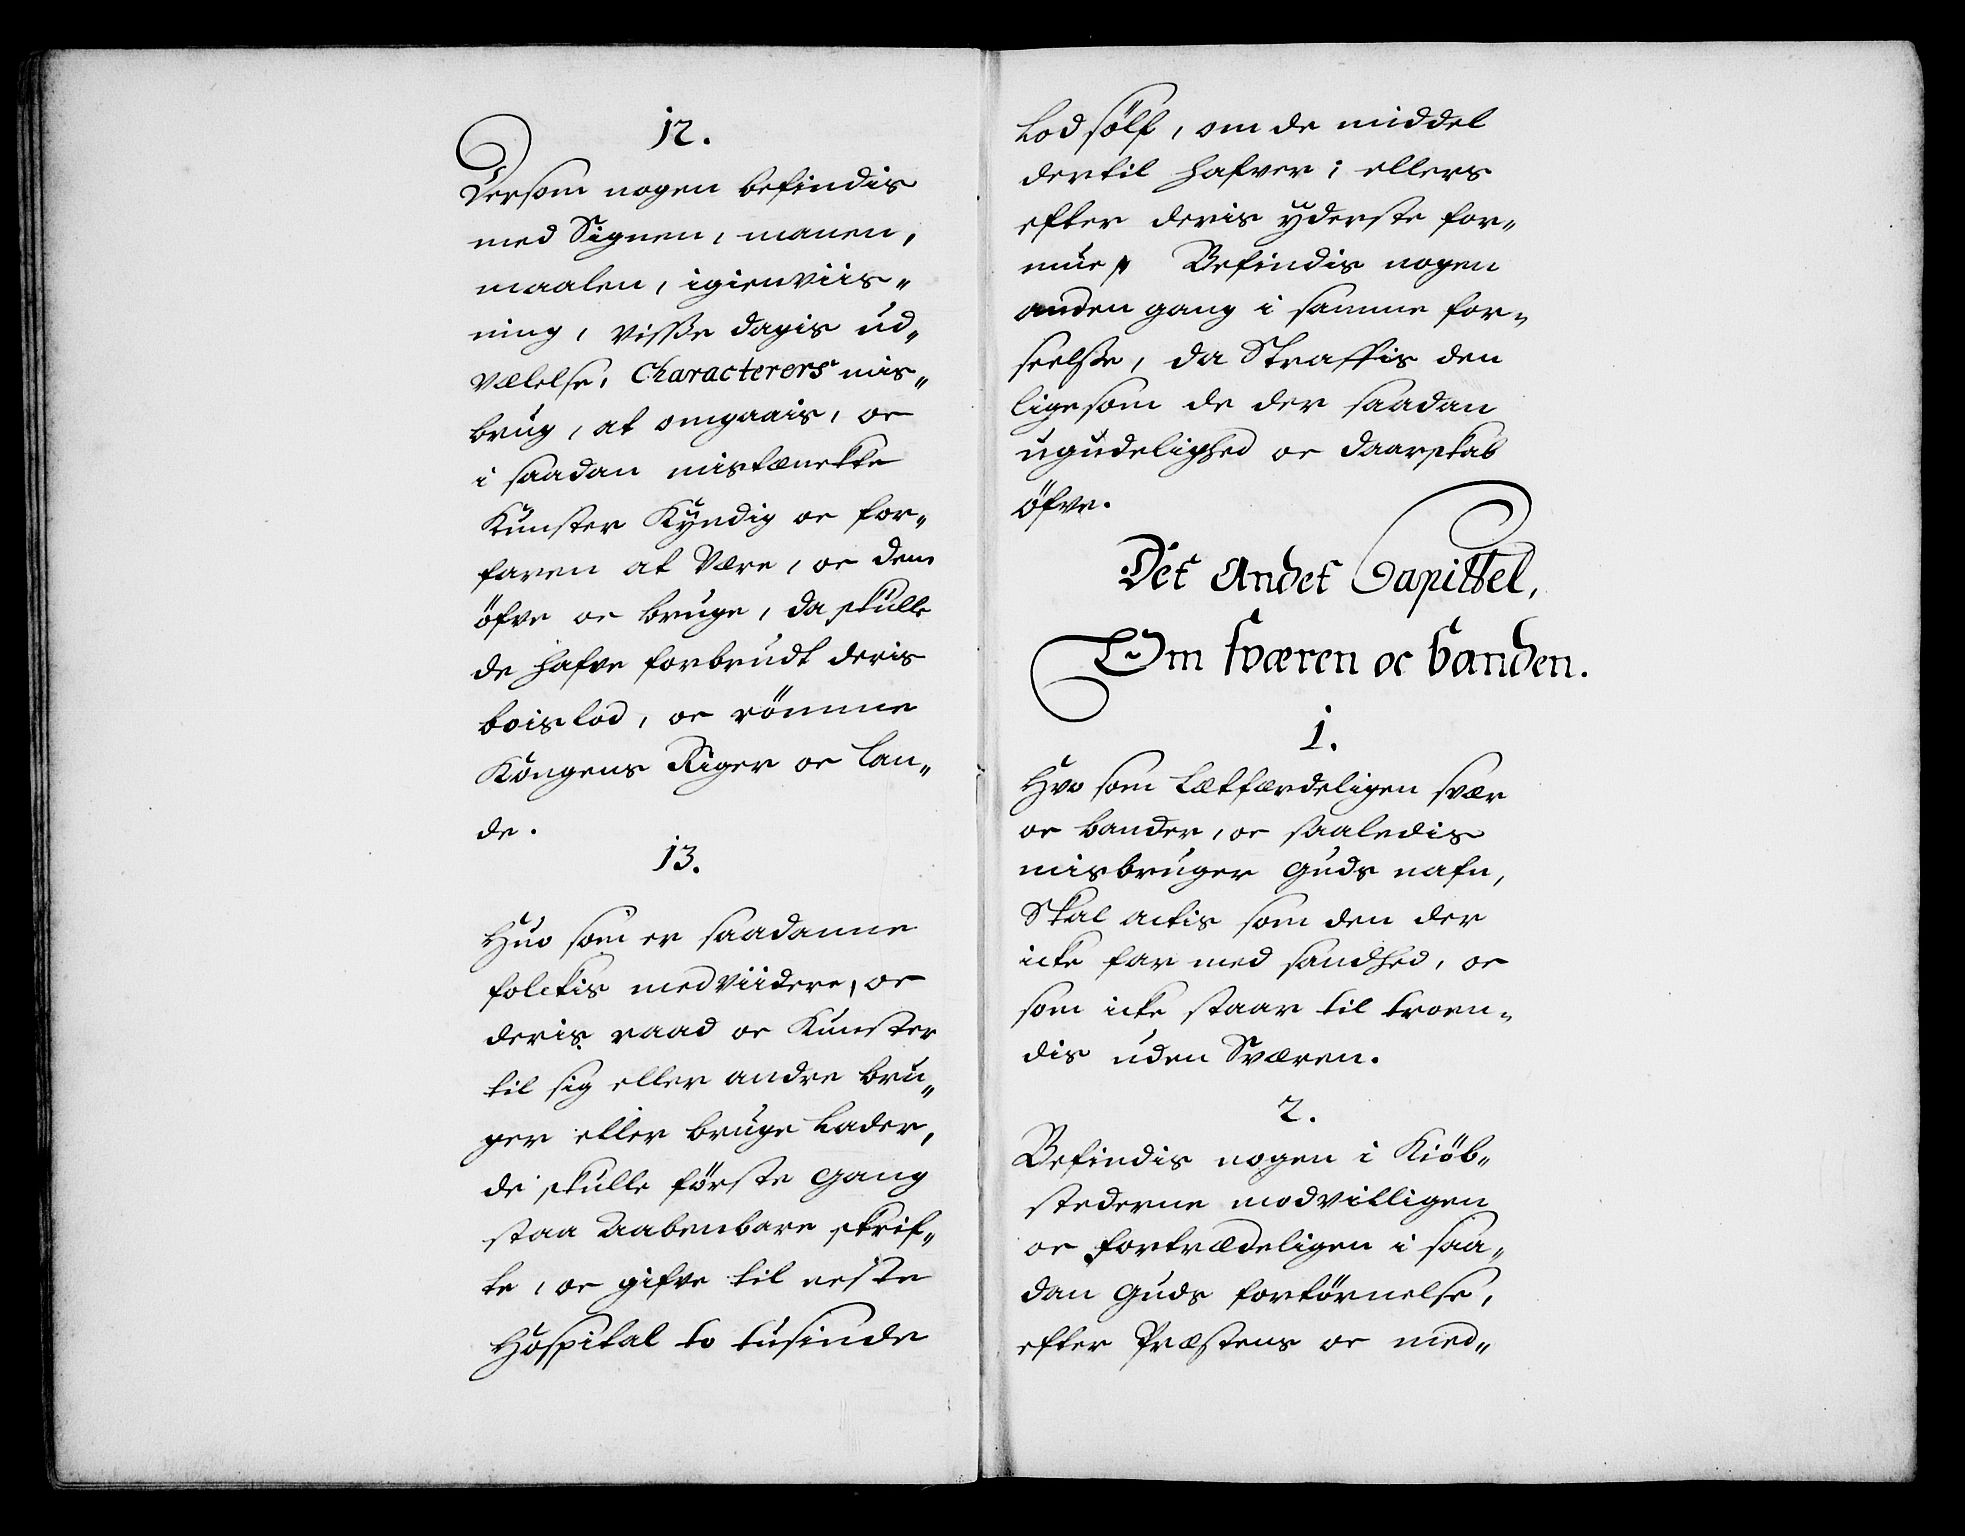 12.
Dersom nogen befindis
med Signen, manen,
maalen, igienviis„
ning, visße dagis ud„
vælelse, Characterers mis„
brug, at omgaais, oc
i saadan mistænckte
Kunster Kyndig oc for„
faren at være, oc dem
öfve oc bruge, da skulle
de hafve forbrudt deris
boislod, oc römme
Kongens Riger oc Lan„
de.
13.
Huo som er saadanne
folckis medviidere, oc
deris raad oc Kunster
til sig eller andre bru„
ger eller bruge Lader,
de skulle förste Gang
staa Aabenbare skrif„
te, oc gifve til neste
Hospital to tusinde
Lod sölf, om de middel
dertil hafver; ellers
efter deris yderste for„
mue, Befindis nogen
anden gang i samme for„
seelße, da Straffis den
ligesom de der saadan
ugudelighed oc daarskab
öfve.
Det Andet Capittel,
Om sværen oc banden.
1.
Hvo som Letfærdeligen svær
oc bander, oc saaledis
misbruger Guds nafn,
Skal actis som den der
icke far med sandhed, oc
som icke staar til troen„
dis uden Sværen.
2.
Befindis nogen i Kiöb„
stederne modvilligen
oc fortrædeligen i saa„
dan Guds fortörnelse,
efter Præstens oc med„